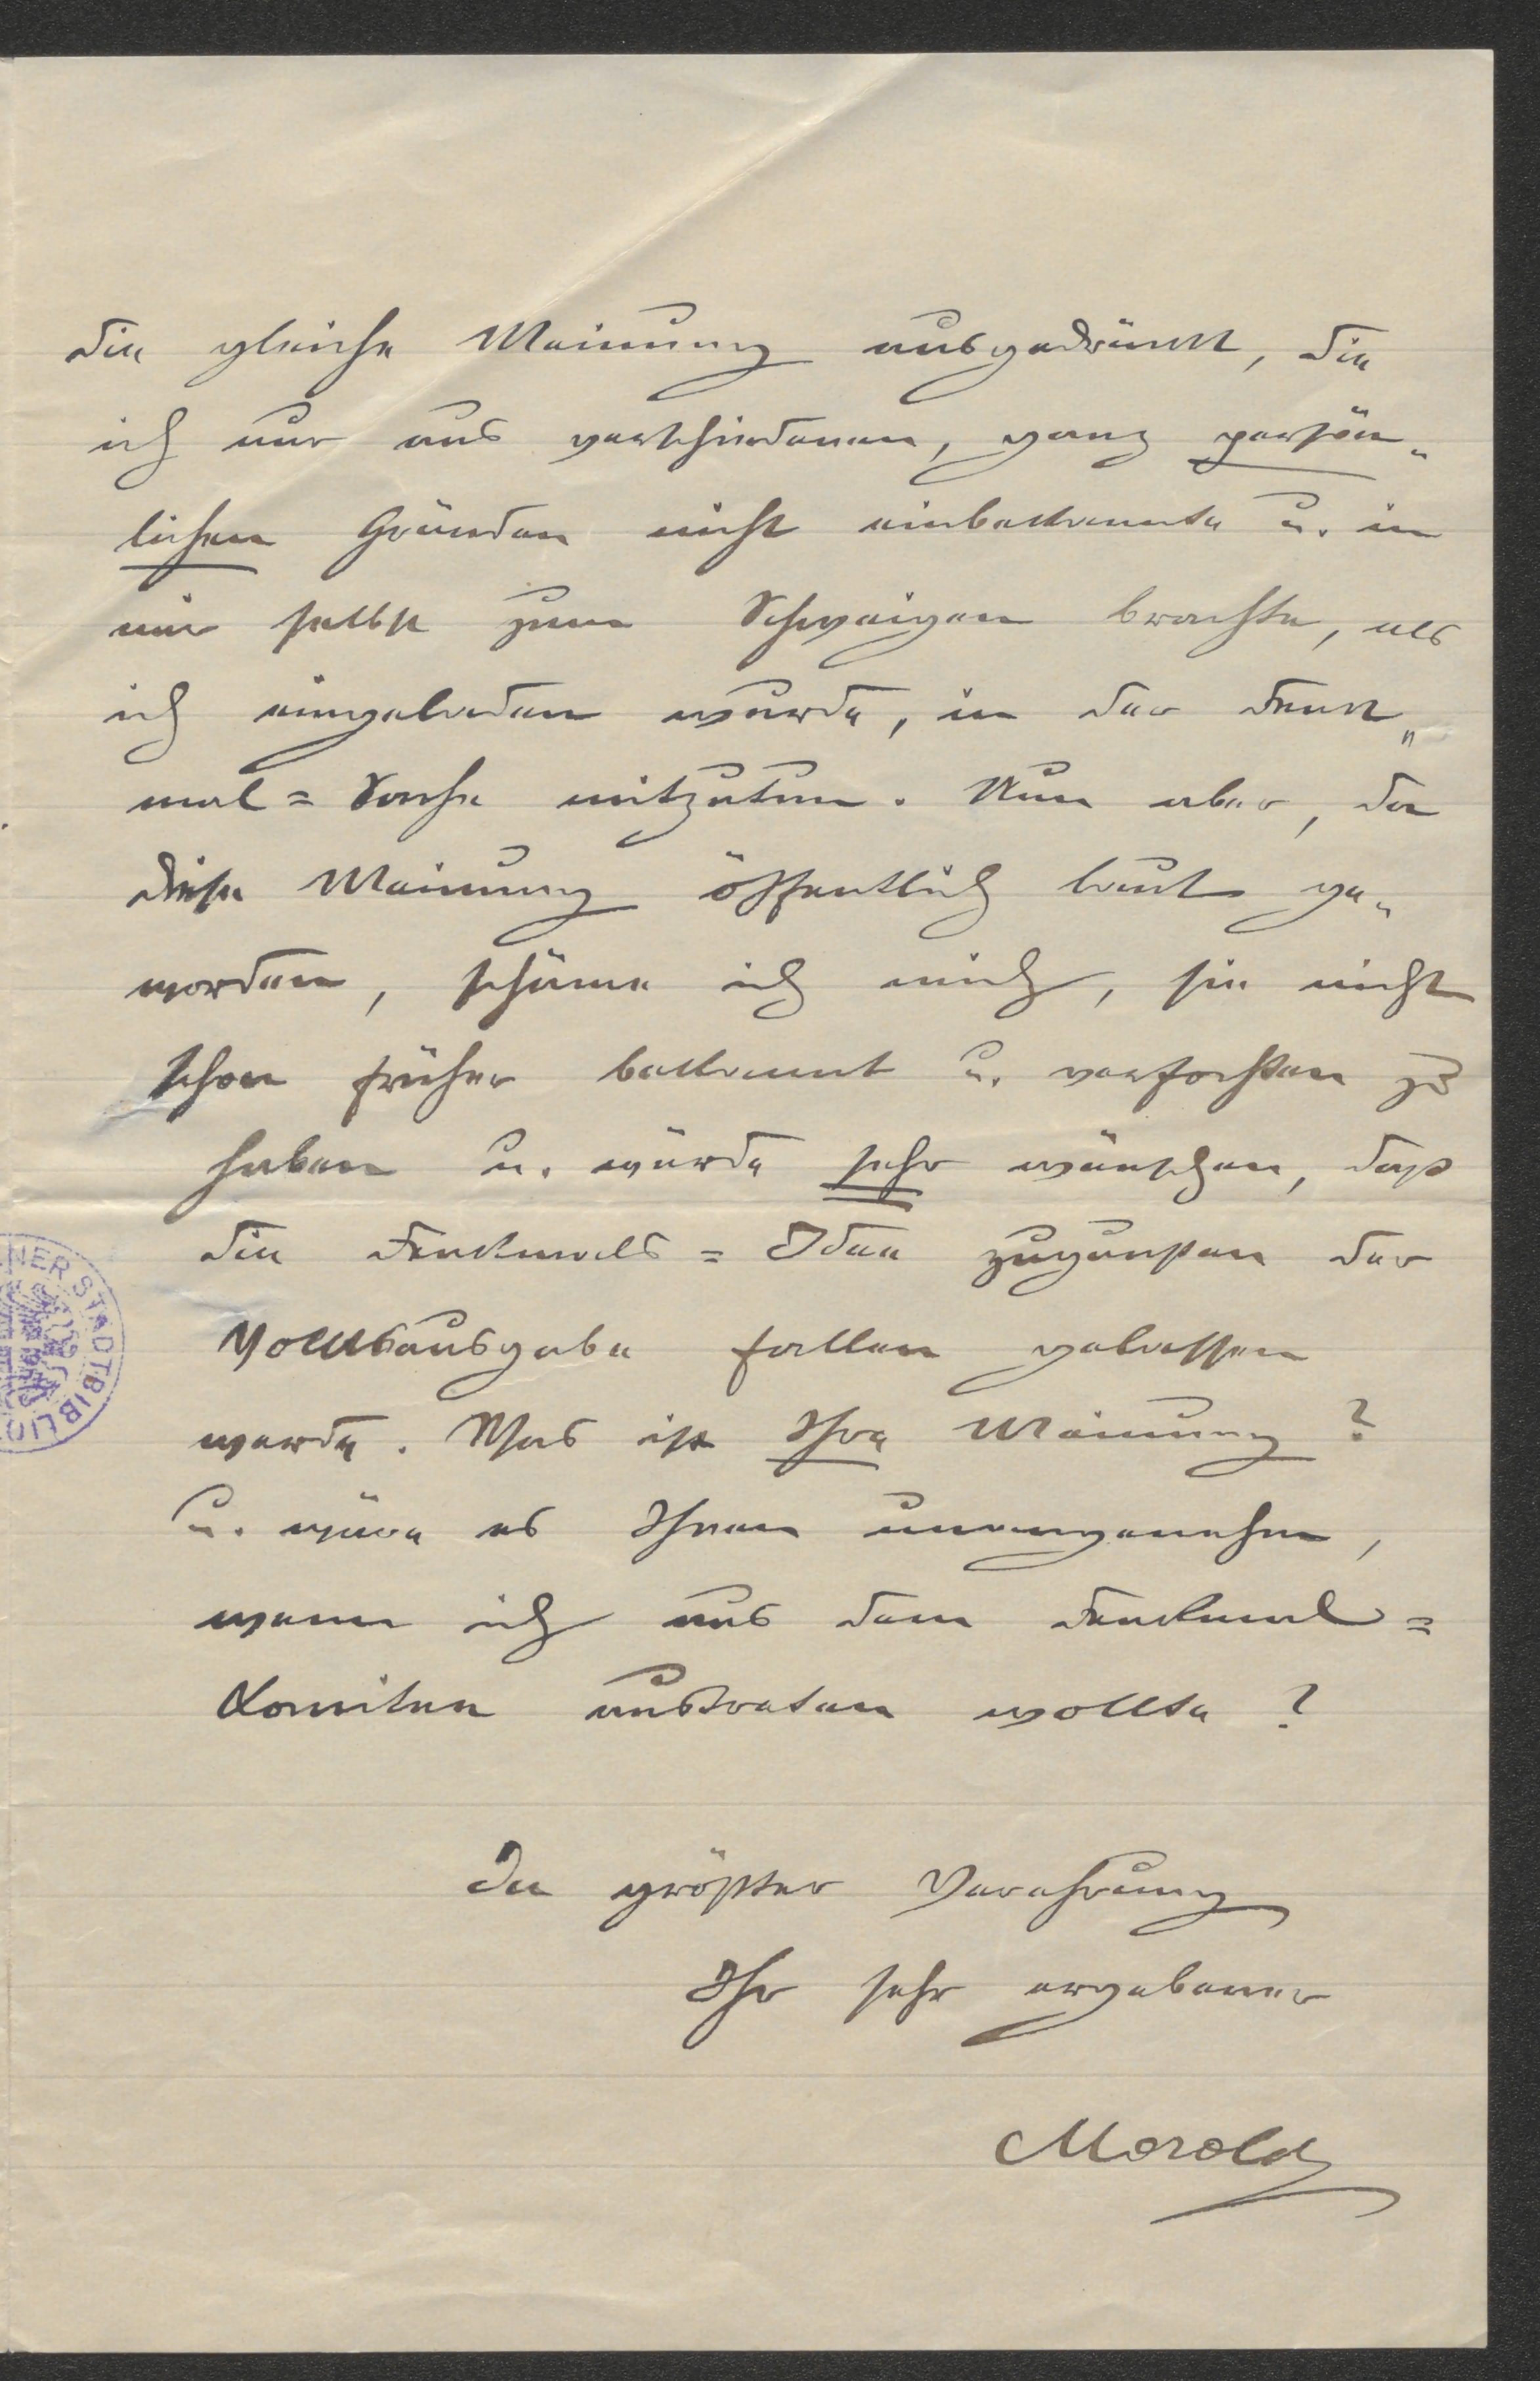 die gleiche Meinung ausgedrückt, die
ich nur aus verschiedenen, ganz persön„
lichen Gründen nicht einbekannte u. in
mir selbst zum Schweigen brachte, als
ich eingeladen wurde, in der Denk„
mal = Sache mitzutun. Nun aber, da
diese Meinung öffentlich laut ge„
worden, schäme ich mich, sie nicht
schon früher bekannt u. verfochten zu
haben u. würde sehr wünschen, dass
die Denkmals = Idee zugunsten der
Volksausgabe fallen gelassen
werde. Was ist Ihre Meinung?
U. wäre es Ihnen unangenehm,
wenn ich aus dem Denkmal =
Komitee austreten wollte?
In größter Verehrung
Ihr sehr ergebener
Morold
NER STADTBIBLIO